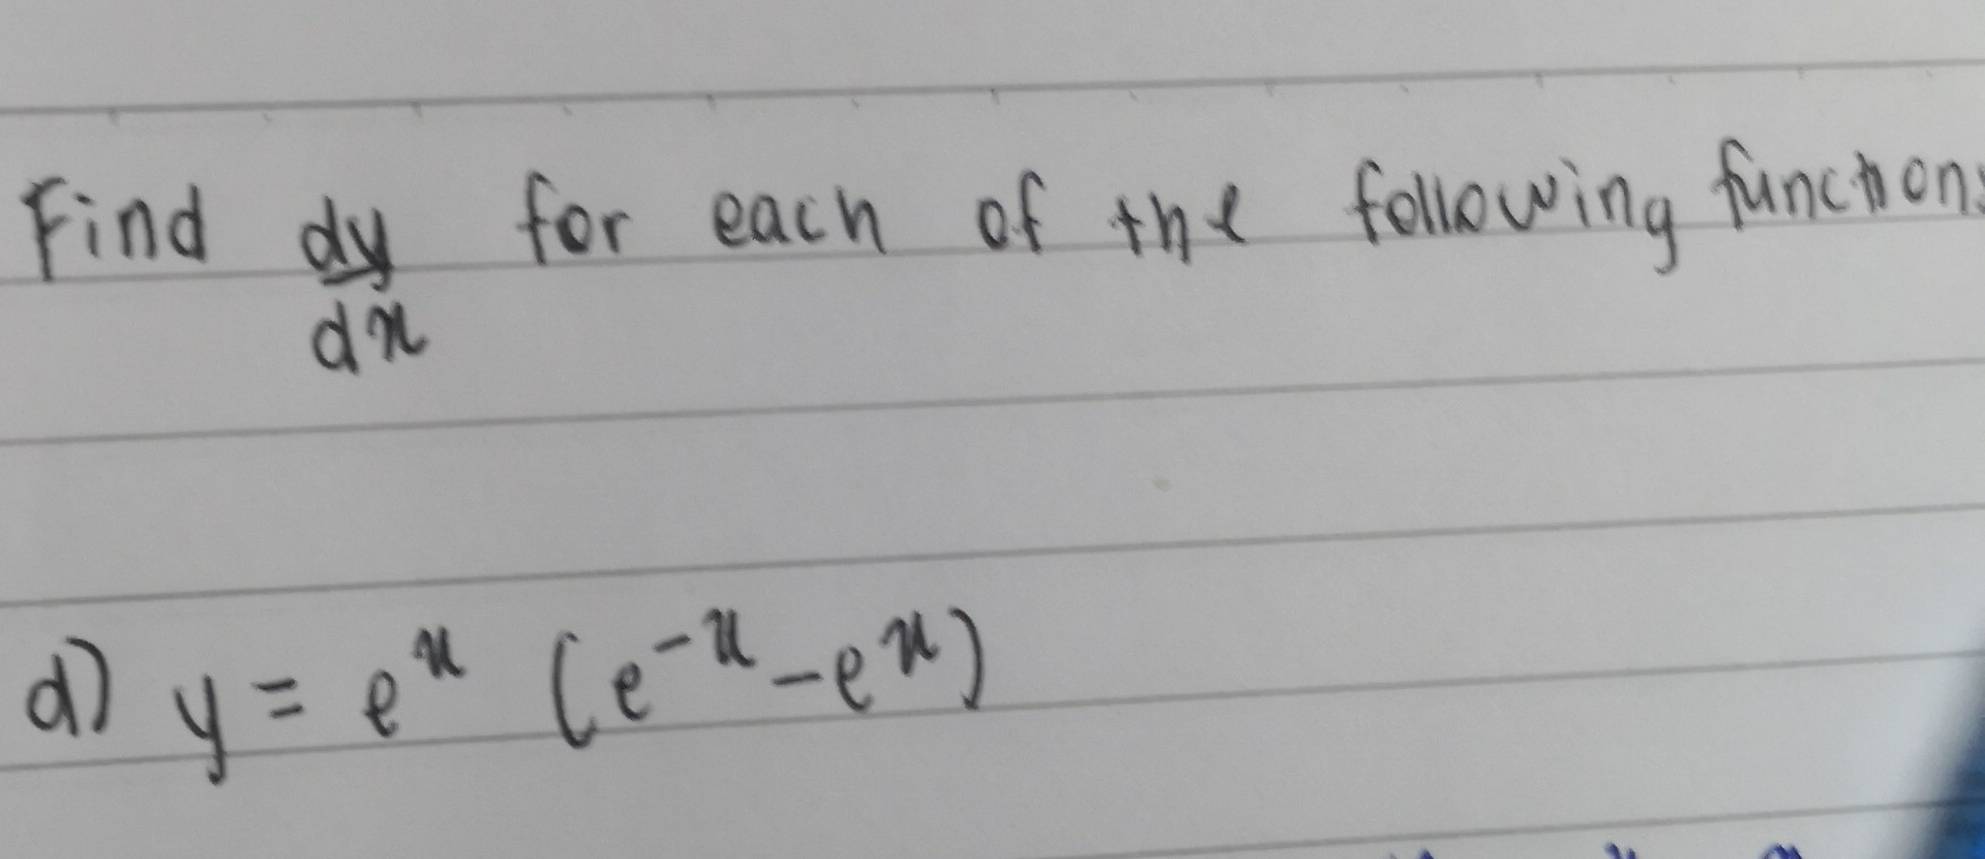 Find dy for each of the following functions
dx
d) y = e^x (e^-x - e^x)